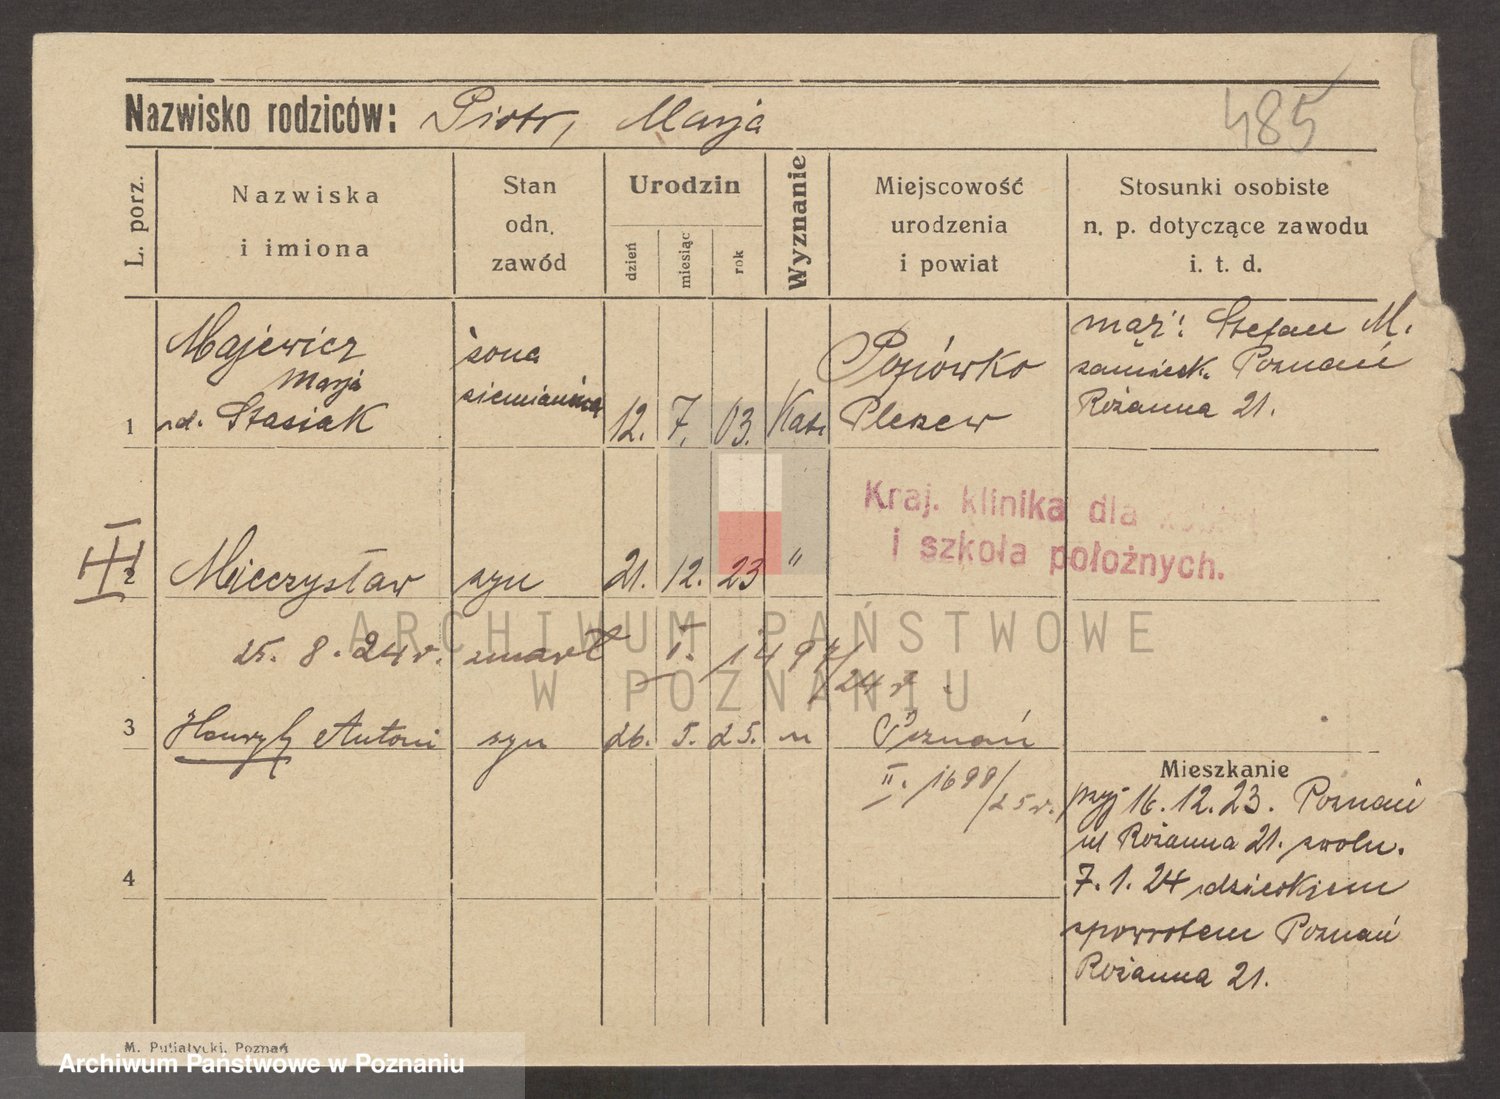 Nazwisko rodziców: Piotr, Marja
485
L. porz.
Nazwiska
i imiona
Stan
odn.
zawód
Urodzin
dzień
miesiąc
rok
Wyznanie
Miejscowość
urodzenia
i powiat
Stosunki osobiste
n. p. dotyczące zawodu
i. t. d.
1
Majewicz
Marja
Stasiak
żona
12. 7. 03. Kat.
Pleszew
mąż: Stefan M.
zamieszk. Poznań
Różanna 21.
Kraj. klinika dla kobiet
i szkoła położnych.
2
Mieczysław syn 21. 12. 23 "
25. 8. 24 r. zmarł I. 1497/24 r.
3
Henryk Antoni syn 26. 5. 25. " Poznań
II. 1699/25 r.
Mieszkanie
przyj 16. 12. 23. Poznań
ul Różanna 21. zwoln.
7. 1. 24 dzieckiem
spowrotem Poznań
Różanna 21.
4
M. Putiatycki, Poznań
ARCHIWUM PAŃSTWOWE
W POZNANIU
Archiwum Państwowe w Poznaniu